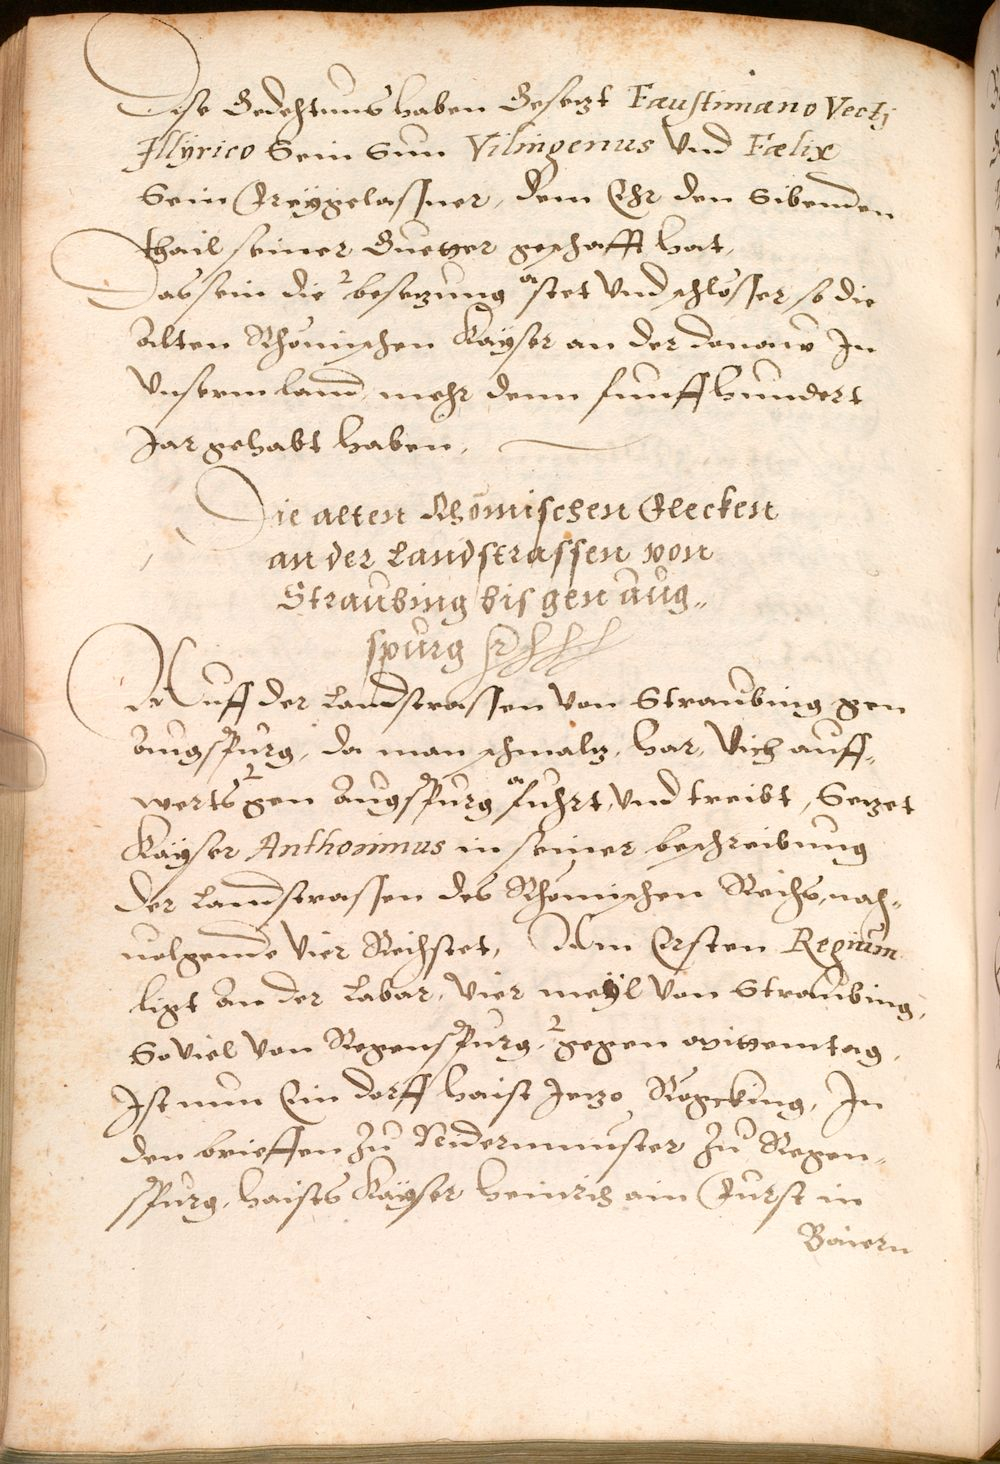 Dise Gedechtnus haben Gesetzt Faustiniano Vectj
Jllÿrico Sein Sun Vilingenus Vnd Fælix
Sein Freÿgelassner, dem Ehr den Sibenden
thail seiner Guetter geschafft hat,
Das sein die besetzung stet Vnd schlösser so die
alten Rhömischen Kaÿser an der donaw In
Vnserm land, mehr denn funffhundert
Jar gehabt haben,
Die alten Rhömischen Flecken
an der Landstrassen von
Straubing bis gen Aug„
spurg
Auff der Landstrassen von Straubing gen
Augspurg, da man schmaltz, har, Vich auff„
werts gen Augspurg fuhrt, Vnd treibt, Setzet
Kaÿser Anthoninus in seiner beschreibung
der Landstrassen des Rhömischen Reichs, nach„
uolgende Vier Reichstet, Am Ersten Reginum
ligt an der Labar, Vier meÿl von Straubing,
So viel von Regenspurg, gegen mittemtag,
Ist nun Ein dorff haist Jetzo Rögcking, In
den brieffen zu Nidermunster zu Regen„
spurg, haists Kaÿser Heinrich ain Furst in
Baiern